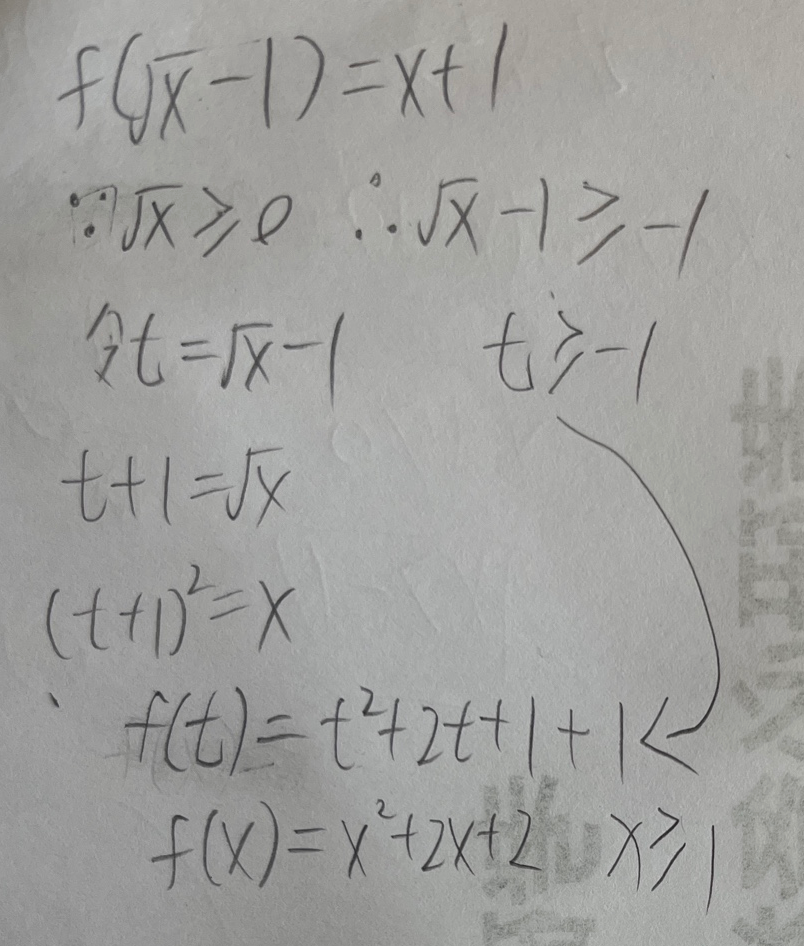 f(√x-1)=x+1
∵√x≥0 ∴√x-1≥-1
令t=√x-1 t≥-1
t+1=√x
(t+1)²=x
f(t)=t²+2t+1+1
f(x)=x²+2x+2 x≥1